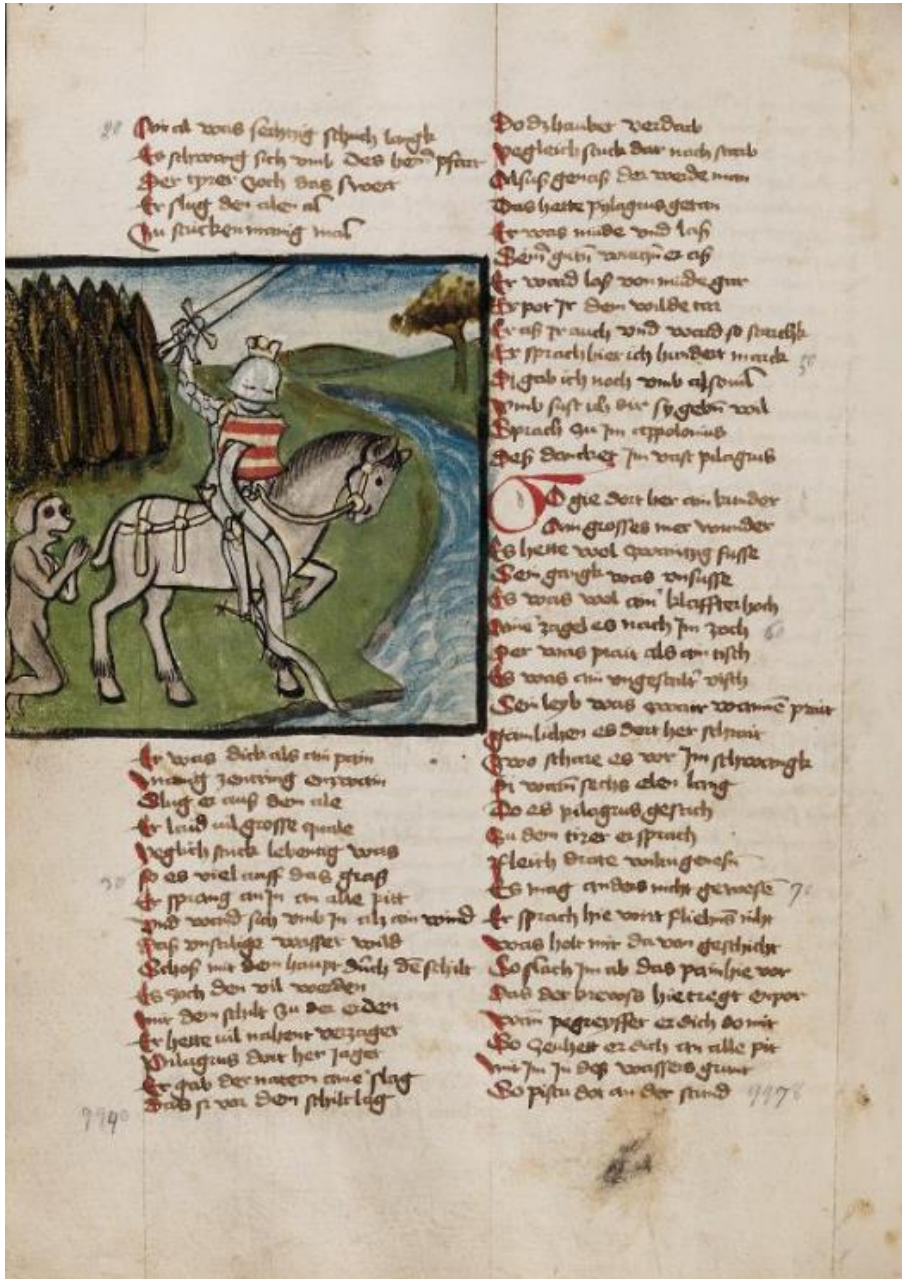 20
Der al was sechtzig schuch langk
Es schwang sich vmb des herñ pfärt
Der tyrer zoch das swert
Er slug den alen al
Zu stucken manig mal
Er was dick als ain pain
zentring enzwain
Slug er auß dem ale
Er laid vil grosse quale
yeglich stuck lebentig was
30
so es viel auff das graß
Er sprang an in an alle pitt
Vnd wand sich vmb in als ain wind
Daß vnsälige wasser wild
Schoß mit dem haupt durch dē schilt
Es zoch den vil werden
mit dem schilt zu der erden
Er hette vil nahent verzaget
Pilagrus dort her jaget
Er gab der natern aine slag
Das si vor dem schilt lag
9940
Do dz haubet verdarb
yegleich stuck dar nach starb
Alsuß genaß der werde man
Das hette pylagrus getan
Er was müde vnd laß
Er ward laß von müde gar
Er pot Jr dem wilde
Er aß jr auch vnd ward so starchk
Er sprach hier ich hundert marck
50
Di gab ich noch vmb
vmb sust ich dir sy gebñ wil
Sprach zu im appolonius
Deß dancket Jm vast pilagrus
Do gie dort her ain kunder
Ain grosses mer wunder
Es hette wol zwaintzig füsse
Sein gangk was vnsüsse
Es was wol ain klaffter hoch
Aine zagel es nach Jm zoch
60
Der was prait als ain tisch
Es was ain vngestalt visch
Sein leyb was zwair wannē prait
es dort her schrait
zwo schare es vor Jm schwangk
Di warñ sechs elen lang
Do es pilagrus gesach
Zu dem tirer er sprach
Fleich drate wiltu genesñ
Es mag anders nicht gewesē
70
Er sprach hie wirt fliehñs niht
was holt mir da von geschicht
So slach Jm ab das pain hie vor
Das der hie tregt enpor
wañ pegreyffet er dich do mit
So zeuhett er dich an alle pit
mit Jm in deß wassers grunt
So pistu dot an der stund
9978